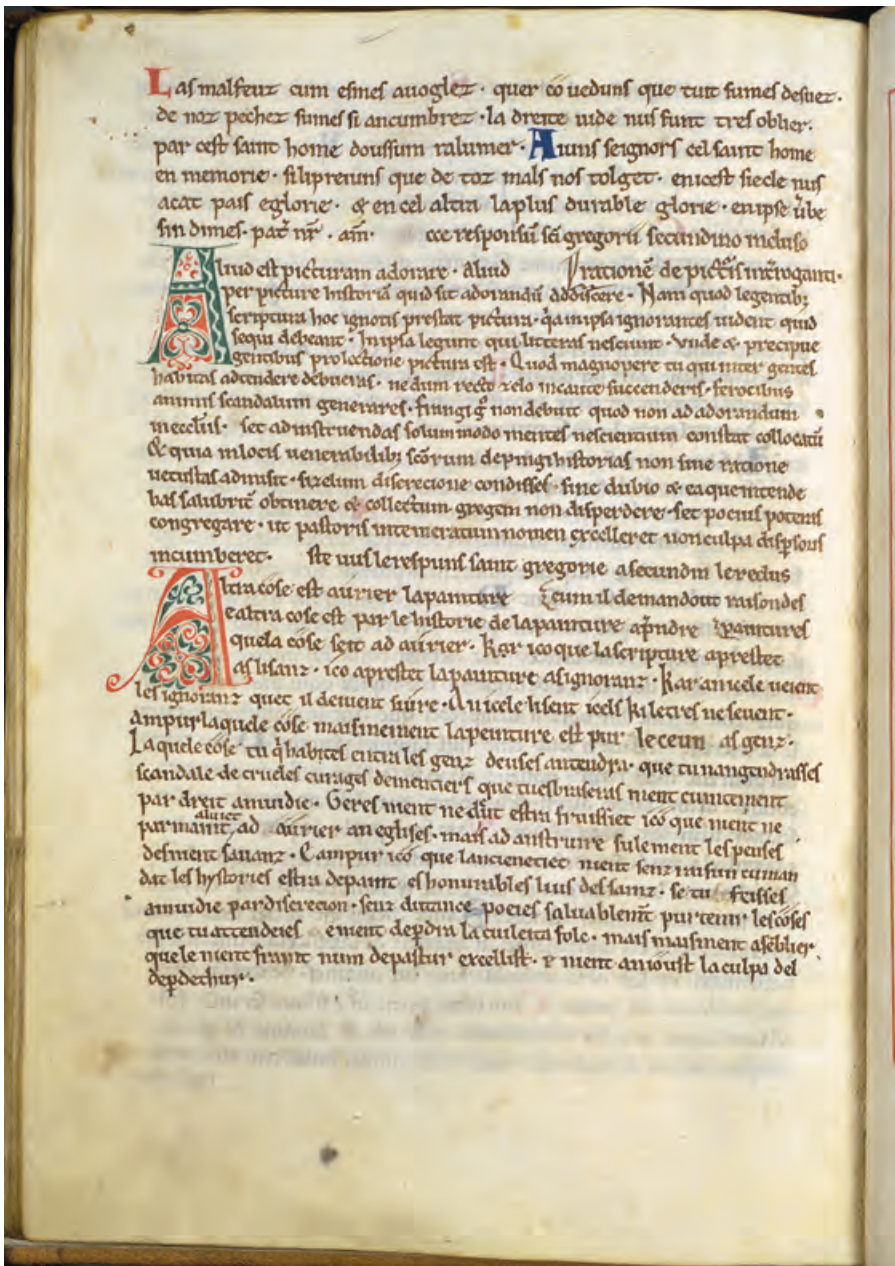 Las malfeuz cum esmes auoglez · quer ço ueduns que tuit sumes desuez ·
de noz pechez sumes si ancumbrez · la dreite uide nus funt tres oblier.
par cest saint home doussum ralumer · Aiuns seignors cel saint home
en memorie · si li preiuns que de toz mals nos tolget · en icest siecle nus
acat pais e glorie · & en cel altra la plus durable glorie · en ipse ũbe
sin dimes · pat̃ nr̃ · am̃ · cce responsũ sc̃i gregorii secundino incluso
Aliud est picturam adorare · Aliud rationẽ de picturis int̃roganti ·
per picture historiã quid sit adorandũ addiscere · Nam quod legentibꝫ
scriptura hoc ignotis prestat pictura · q̃a in ipsa ignorantes uident quid
sequi debeant · In ipsa legunt qui litteras nesciunt · Vnde & precipue
gentibus pro lectione pictura est · Quod magnopere tu qui inter gentes
habitas adtendere debueras · ne dum recto zelo incaute succenderis · ferocibus
animis scandalum generares · frangi g̊ non debuit quod non ad adorandum
in eccl̃iis · set ad instruendas solummodo mentes nescientium constat collocatũ
& quia in locis uenerabilibꝫ sc̃orum depingi historias non sine ratione
uetustas admisit · si zelum discrecione condisses · sine dubio & ea que intende
bas salubrit̃ obtinere & collectum gregem non disperdere · set pocius poteras
congregare · ut pastoris intemeratum nomen excelleret non culpa disp̃soris
incumberet · ste uus le respuns saint gregorie a secundin le reclus
Altra cose est aürier la painture cum il demandout raison des
e altra cose est par le historie de la painture ap̃ndre paintures
quela cose seit ad aürier · Kar ico que la scripture aprestet
as lisanz · ico aprestet la painture as ignoranz · Kar an icele ueient
les ignoranz quet il deiuent siure · An icele lisent icels ki letres ne seuent ·
ampur laquele cose maismement la peinture est pur leceun as genz ·
Laquele cose tu q̃ habites entra les genz deuses antendra · que tu nangendrasses
scandale de crueles curages dementiers que tu esbraseras nient cuintement
par dreit amuidie · Geres nient ne dut estra fruissiet ico que nient ne
parmaint aluiet ad aürier an eglises · mais ad anstruire sulement les penses
des nient sauanz · E ampur ico que lancienetiet nient senz raisun cuman
dat les hystories estra depaint es honurables lius des sainz · se tu feisses
amuidie par discrecion · senz dutance poeies saluablem̃t purtenir les coses
que tu attendeies e nient dep̃dra la cuileita folc · mais maisment aseblier
que le nient frait num de pastur excellist · e nient anioust la culpa del
dep̃dethur ·